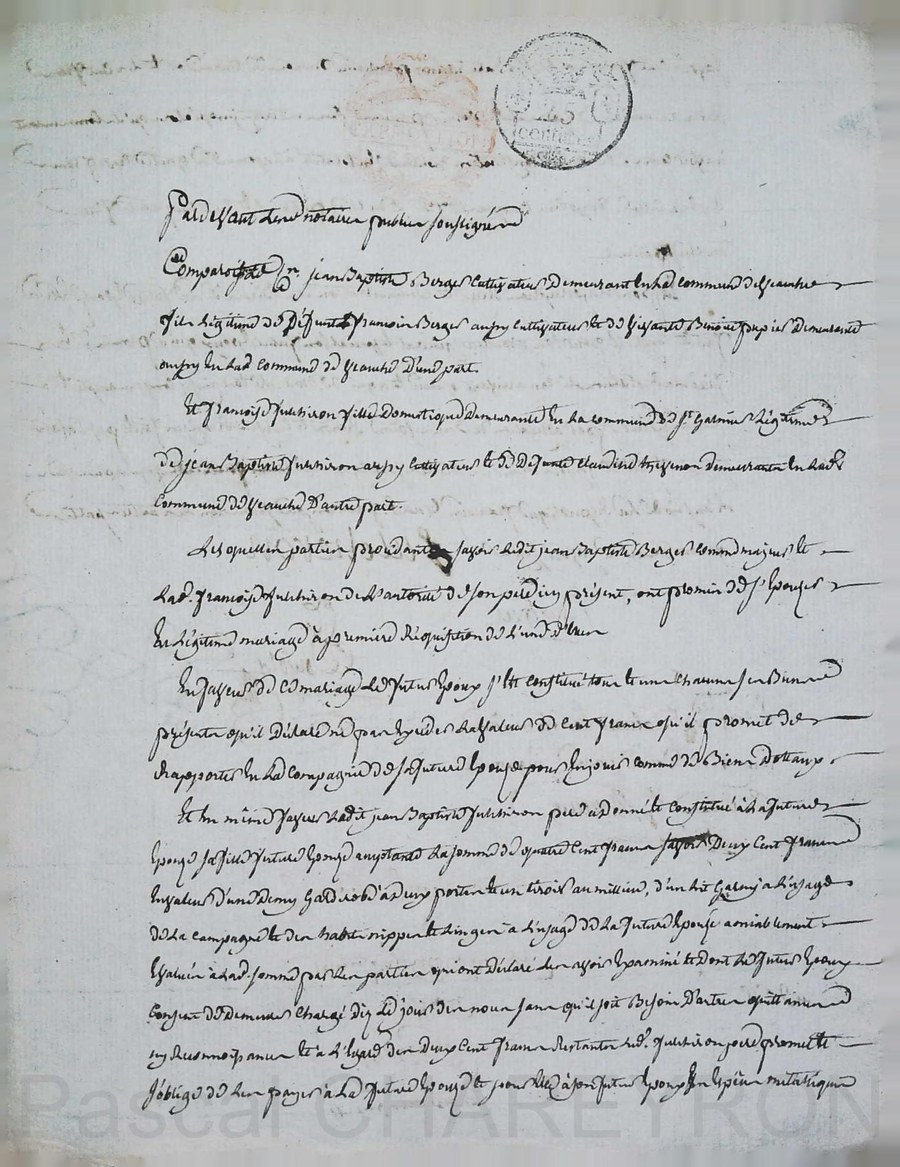 25
centimes
Pardevant les notaires publics soussignés
Comparoissent jean Baptiste Berger Cultivateur Demeurant en La commune de veauche
fils Légitime de Défunt francois Berger aussy Cultivateur et de vivante Benoite Demeurante
aussy en Lad. commune de veauche D'une part.
Et francoise fille Domestique Demeurante en La commune de St. Galmier Légitime
de jean Baptiste aussy Cultivateur et de Défunte Claudine Demeurante en Lad.
Commune de veauche D'autre part.
Lesquelles parties procédantes savoir Ledit jean Baptiste Berger comme majeur et
Lad. francoise de L'autorité de son père icy présent, ont promis de s'Epouser
En Légitime mariage à première Réquisition de L'une d'elles
En faveur de Ce mariage Le futur Epoux s'est Constitué tous et uns Chacuns ses Biens
présents qu'il Déclare ne pas Excéder La valeur de Cent francs qu'il promet de
Rapporter En La Compagnie de sa future Epouse pour En jouir comme de Biens Dottaux
Et En même faveur Ledit jean Baptiste père a Donné et Constitué à La future
Epouse sa fille future Epouse acceptante La somme de quatre Cent francs savoir Deux Cent francs
En valeur d'une Demy Garderobe à Deux portes et un tiroir au millieu, d'un Lit Garny à L'usage
de La Campagne et des habits nippes et Linges à L'usage de La future Epouse amiablement
Evalués à Lad. somme par Les parties qui ont Déclaré Les avoir Examiné et Dont Le futur Epoux
Consent de Demeurer Chargé Dez Le jour des noces sans qu'il soit Besoin D'autres quittances
ny Reconnoissances Et à L'Egard des Deux Cent francs Restants Led. père promet et
s'oblige de Les payer à La future Epouse Et pour Elle à son futur Epoux En Espèces métallique
Pascal CHAREYRON